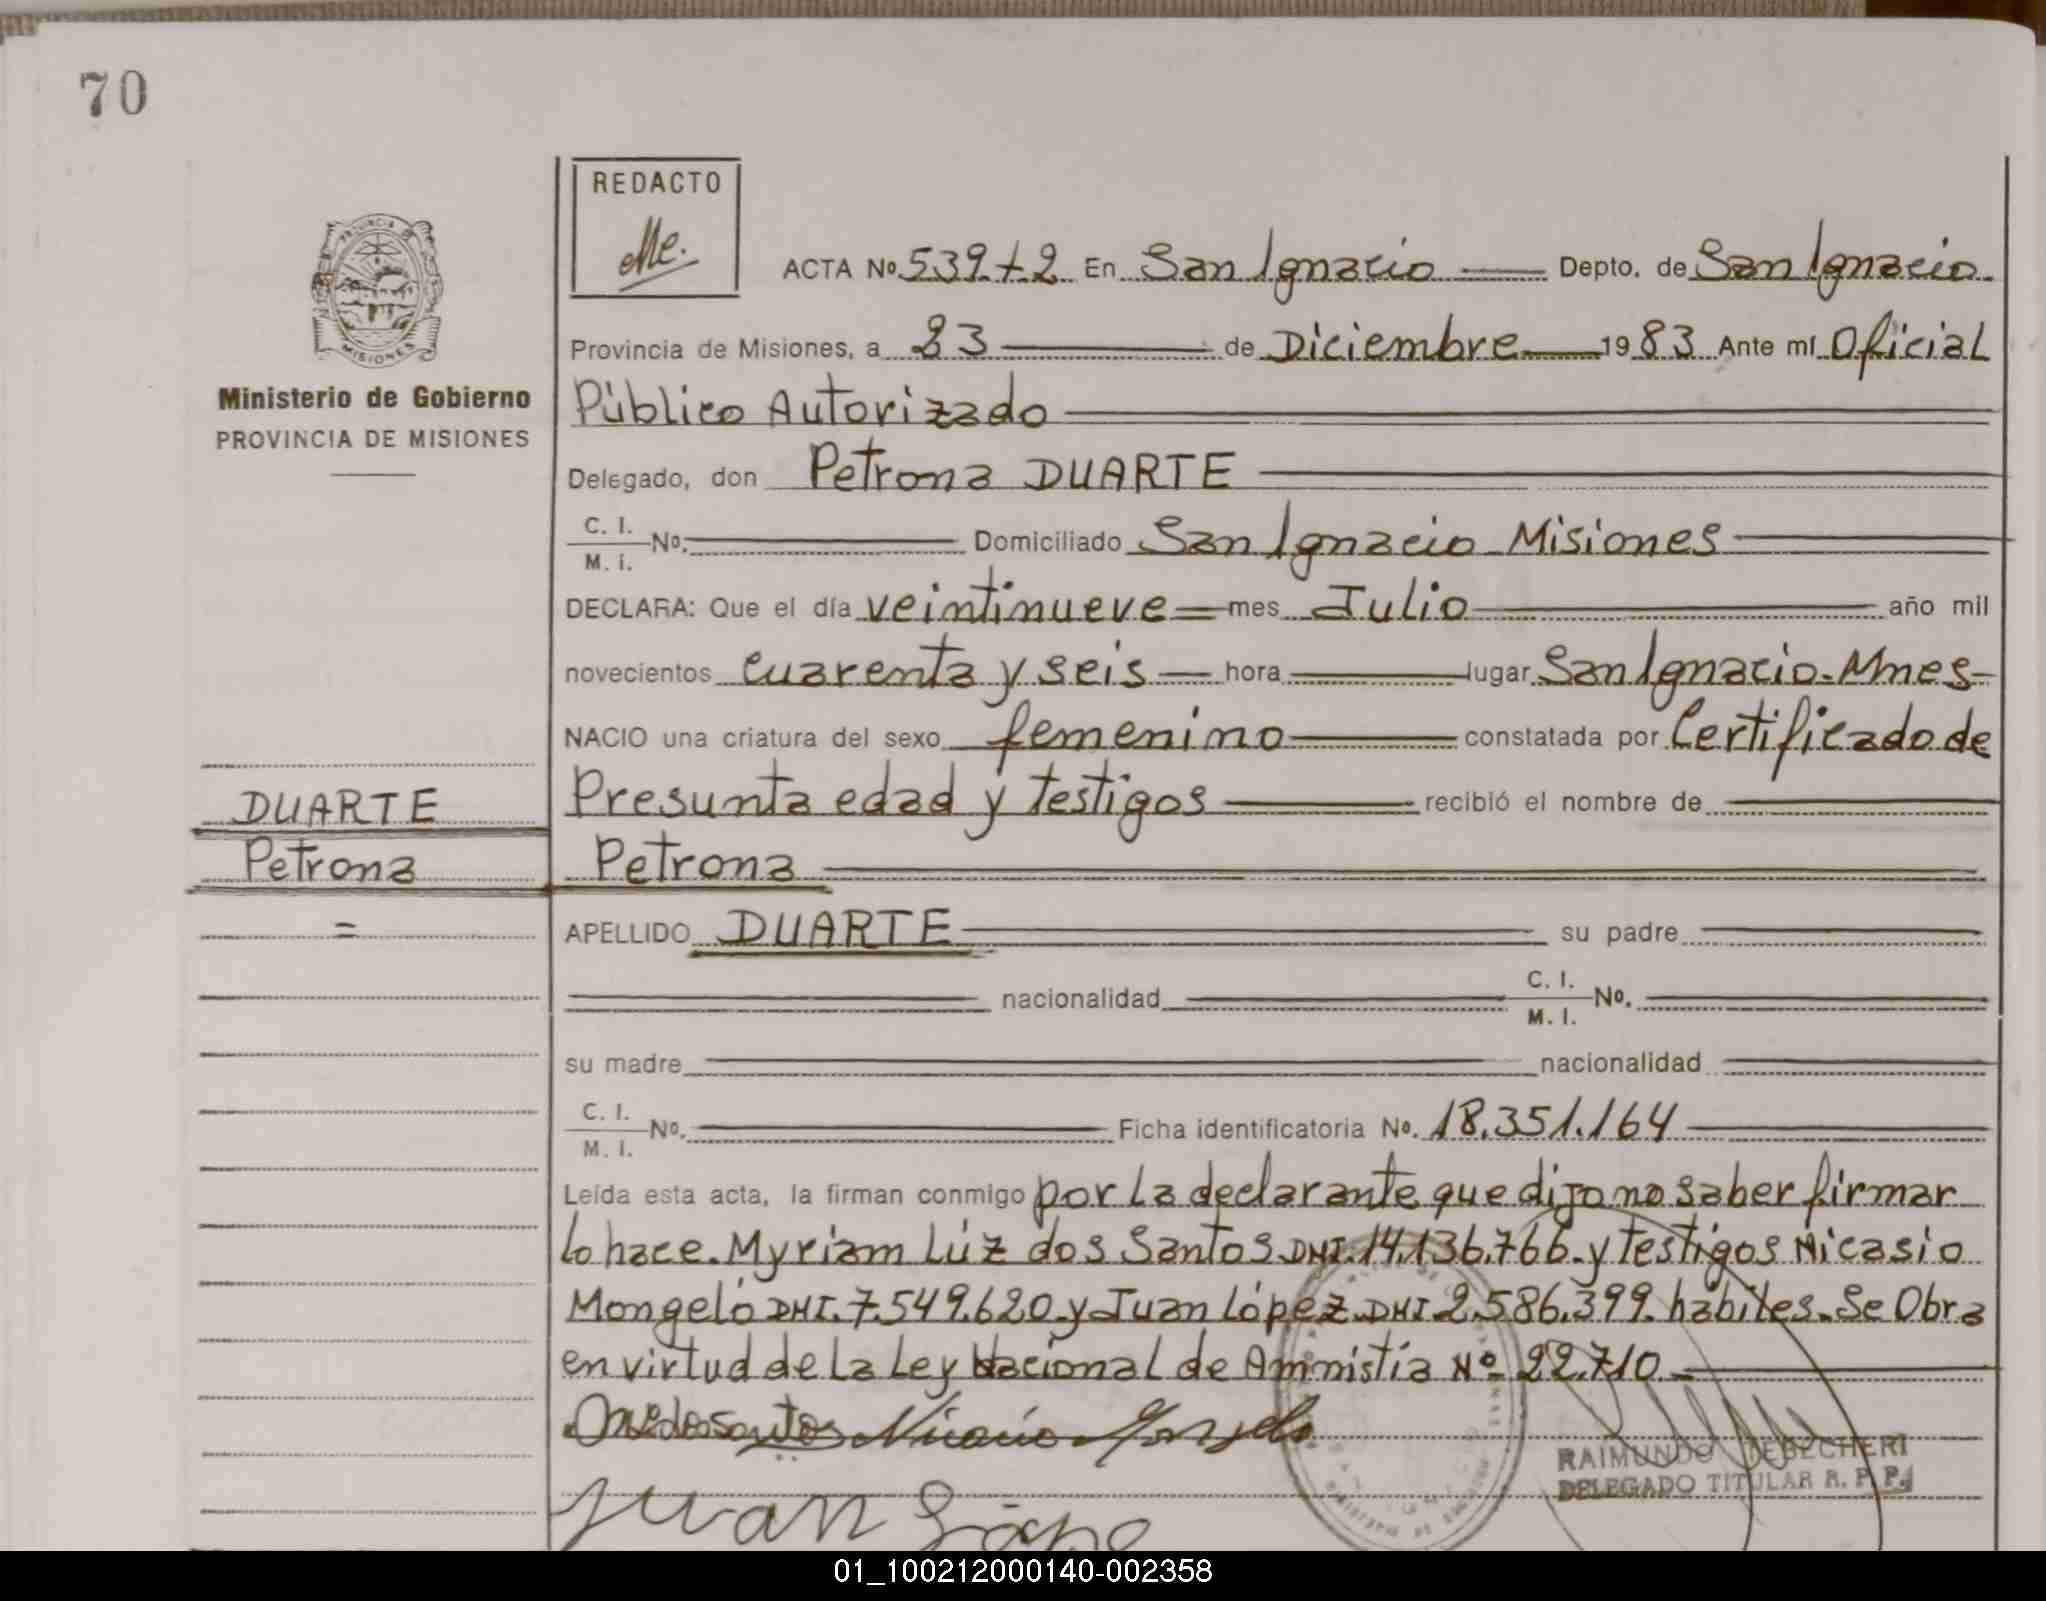 70
REDACTO
Me.
ACTA No. 539.t2 En San Ignacio Depto. de San Ignacio.
Provincia de Misiones, a 23 de Diciembre 1983 Ante mí Oficial
Público Autorizado
Delegado, don Petrona DUARTE
C. I.
M. I. No. Domiciliado San Ignacio Misiones
DECLARA: Que el día veintinueve = mes Julio año mil
novecientos cuarenta y seis hora lugar San Ignacio. Mnes
NACIO una criatura del sexo femenino constatada por Certificado de
Presunta edad y testigos recibió el nombre de
Petrona
APELLIDO DUARTE su padre
nacionalidad C. I.
M. I. No.
su madre nacionalidad
C. I.
M. I. No. Ficha identificatoria No. 18.351.164
Leída esta acta, la firman conmigo por la declarante que dijo no saber firmar
lo hace. Myriam Lúz dos Santos DNI. 14.136.766. y testigos Nicasio
Mongeló DNI. 7.549.620 y Juan López. DNI 2.586.399. hábiles. Se Obra
en virtud de la Ley Nacional de Amnistía Nº 22.710.
Juan
RAIMUNDO TEBECHERI
DELEGADO TITULAR R. P. P.
PROVINCIA DE
MISIONES
Ministerio de Gobierno
PROVINCIA DE MISIONES
DUARTE
Petrona
=
01_100212000140-002358